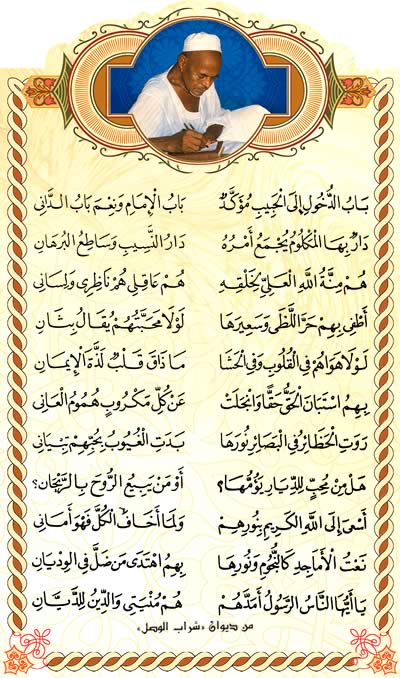 بَابُ الدُّخُولِ إِلَى الْحَبِيبِ مُؤَكَّدٌ بَابُ الْإِمَامِ وَنِعْمَ بَابُ الدَّانِي
دَارٌ بِهَا الْمَكْلُومُ يُجْمَعُ أَمْرُهُ دَارُ النَّسِيبِ وَسَاطِعُ الْبُرْهَانِ
هُمْ مِنَّةُ اللَّهِ الْعَلِيِّ لِخَلْقِهِ هُمْ عَاقِلِي هُمْ نَاظِرِي وَلِسَانِي
أَطْفِي بِهِمْ حَرَّ اللَّظَى وَسَعِيرَهَا لَوْلَا مَحَبَّتُهُمْ يُقَالُ بِثَانِ
لَوْلَا هَوَاهُمْ فِي الْقُلُوبِ وَفِي الْحَشَا مَا ذَاقَ قَلْبٌ لَذَّةَ الْإِيمَانِ
بِهِمُ اسْتَبَانَ الْحَقُّ حَقًّا وَانْجَلَتْ عَنْ كُلِّ مَكْرُوبٍ هُمُومُ الْعَانِي
رَوَتِ الْحَظَائِرُ فِي الْبَصَائِرِ نُورَهَا بَدَتِ الْغُيُوبُ بِحُبِّهِمْ بِتِيَانِي
هَلْ مِنْ مُحِبٍّ لِلدِّيَارِ يَؤُمُّهَا؟ أَوْ مَنْ يَبِيعُ الرُّوحَ بِالرَّيْحَانِ؟
أَسْعَى إِلَى اللَّهِ الْكَرِيمِ بِنُورِهِمْ وَلَمَا أَخَافُ الْكُلَّ فَهْوَ أَمَانِي
نَعْتُ الْأَمَاجِدِ كَالنُّجُومِ وَنُورِهَا بِهِمُ اهْتَدَى مَنْ ضَلَّ فِي الْوِدْيَانِ
يَا أَيُّهَا النَّاسُ الرَّسُولُ أَمَدَّهُمْ هُمْ مُنْيَتِي وَالدِّينُ لِلدَّيَّانِ
من ديوان «شراب الوصل»